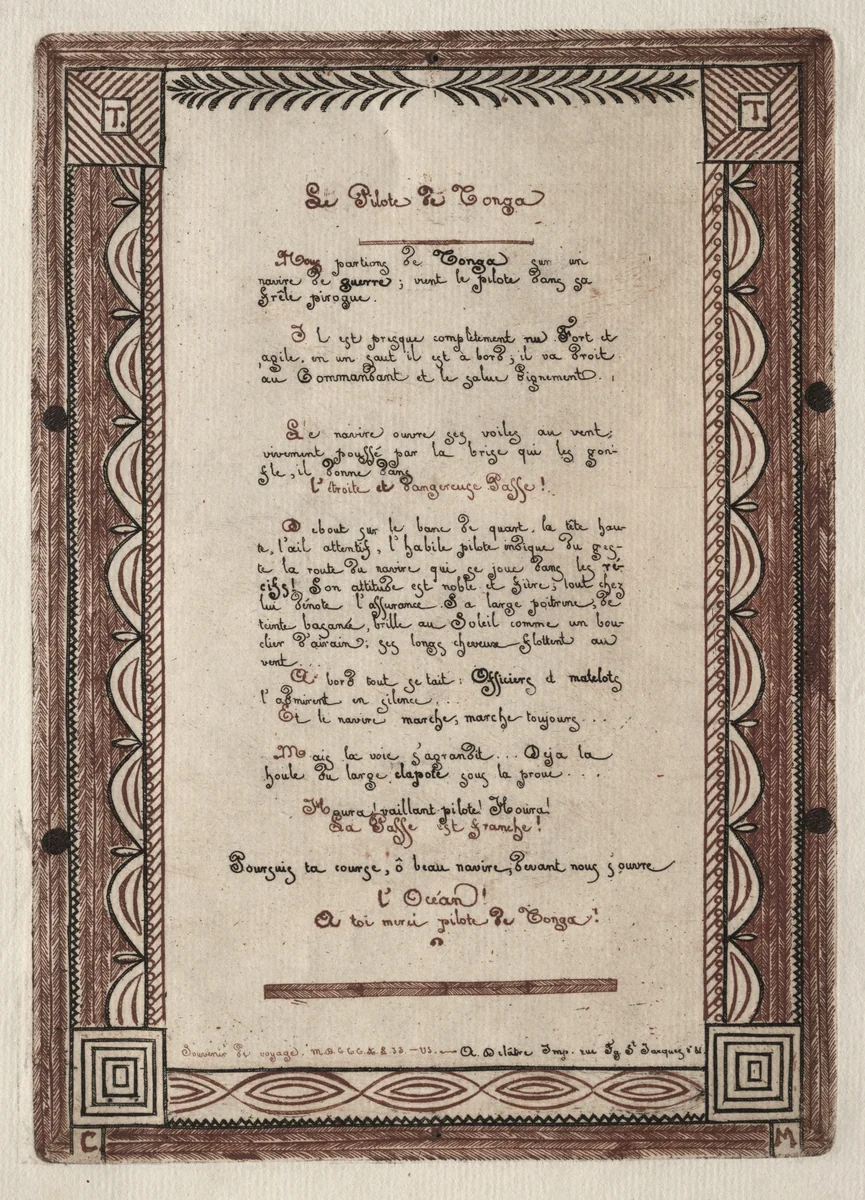 T. T.
Le Pilote de Tonga
Nous partions de Tonga sur un
navire de guerre ; vient le pilote dans sa
frêle pirogue.
Il est presque complètement nu. Fort et
agile, en un saut il est à bord ; il va droit
au Commandant et le salue dignement.
Le navire ouvre ses voiles au vent;
vivement poussé par la brise qui les gon-
fle, il donne dans
l'étroite et dangereuse Passe !
Debout sur le banc de quart, la tête hau-
te, l'œil attentif, l'habile pilote indique du ges-
te la route du navire qui se joue dans les ré-
cifs! Son attitude est noble et fière; tout chez
lui dénote l'assurance. Sa large poitrine, de
teinte basanée, brille au Soleil comme un bou-
clier d'airain; ses longs cheveux flottent au
vent...
A bord tout se tait : Officiers et matelots
l'admirent en silence....
Et le navire marche, marche toujours...
Mais la voie s'agrandit... Déja la
houle du large clapote sous la proue....
Houra! vaillant pilote! Houra!
La Passe est franche !
Poursuis ta course, ô beau navire, devant nous s'ouvre
l'Océan !
A toi merci pilote de Tonga !
Souvenir de voyage. A. Delâtre Imp. rue Fg St Jacques
C. M